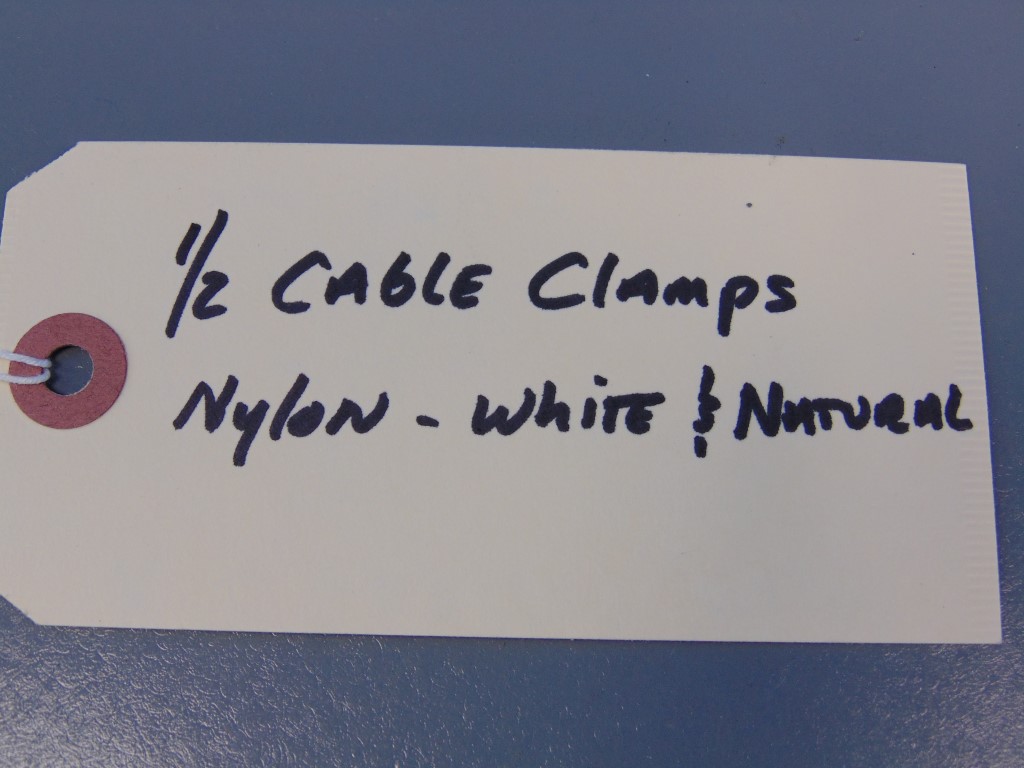 1/2 CABLE Clamps
Nylon - White & Natural